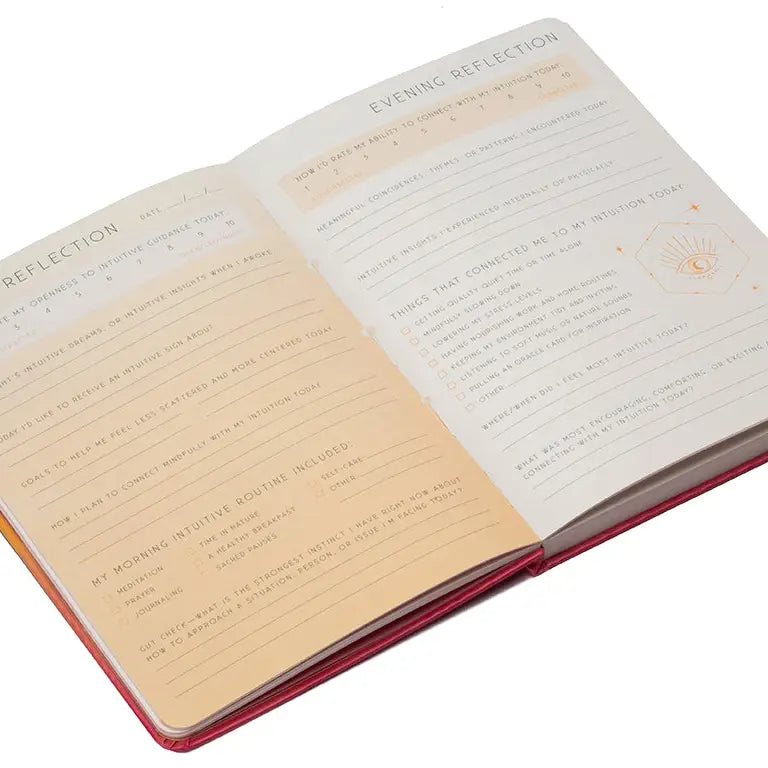 REFLECTION
DATE __/__/__
MY OPENNESS TO INTUITIVE GUIDANCE TODAY
3 4 5 6 7 8 9 10
INTUITIVE DREAMS, OR INTUITIVE INSIGHTS WHEN I AWOKE
I'D LIKE TO RECEIVE AN INTUITIVE SIGN ABOUT
GOALS TO HELP ME FEEL LESS SCATTERED AND MORE CENTERED TODAY
HOW I PLAN TO CONNECT MINDFULLY WITH MY INTUITION TODAY
MY MORNING INTUITIVE ROUTINE INCLUDED:
MEDITATION
PRAYER
JOURNALING
TIME IN NATURE
A HEALTHY BREAKFAST
SACRED PAUSES
SELF-CARE
OTHER
GUT CHECK—WHAT IS THE STRONGEST INSTINCT I HAVE RIGHT NOW ABOUT
HOW TO APPROACH A SITUATION, PERSON, OR ISSUE I'M FACING TODAY?
EVENING REFLECTION
HOW I'D RATE MY ABILITY TO CONNECT WITH MY INTUITION TODAY
1 2 3 4 5 6 7 8 9 10
MEANINGFUL COINCIDENCES, THEMES, OR PATTERNS I ENCOUNTERED TODAY
INTUITIVE INSIGHTS I EXPERIENCED INTERNALLY OR PHYSICALLY
THINGS THAT CONNECTED ME TO MY INTUITION TODAY
GETTING QUALITY QUIET TIME OR TIME ALONE
MINDFULLY SLOWING DOWN
LOWERING MY STRESS LEVELS
HAVING NOURISHING WORK AND HOME ROUTINES
KEEPING MY ENVIRONMENT TIDY AND INVITING
LISTENING TO SOFT MUSIC OR NATURE SOUNDS
PULLING AN ORACLE CARD FOR INSPIRATION
OTHER
WHERE/WHEN DID I FEEL MOST INTUITIVE TODAY?
WHAT WAS MOST ENCOURAGING, COMFORTING, OR EXCITING
CONNECTING WITH MY INTUITION TODAY?